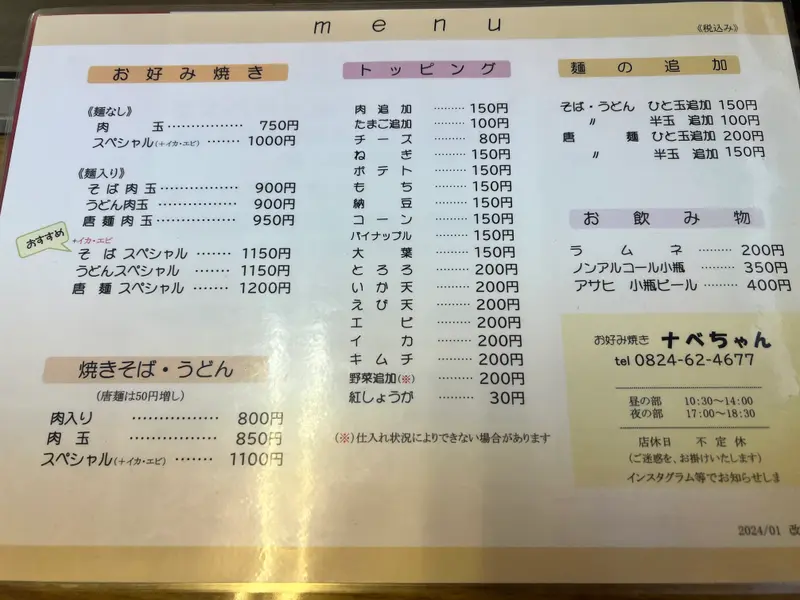 menu
《税込み》
お好み焼き
《麺なし》
肉玉 ‥‥‥‥‥ 750円
スペシャル(＋イカ・エビ) ‥‥‥ 1000円
《麺入り》
そば肉玉 ‥‥‥‥‥ 900円
うどん肉玉 ‥‥‥‥‥ 900円
唐麺肉玉 ‥‥‥‥‥ 950円
おすすめ
+イカ・エビ
そばスペシャル ‥‥‥ 1150円
うどんスペシャル ‥‥‥ 1150円
唐麺スペシャル ‥‥‥ 1200円
焼きそば・うどん
(唐麺は50円増し)
肉入り ‥‥‥‥‥ 800円
肉玉 ‥‥‥‥‥ 850円
スペシャル(＋イカ・エビ) ‥‥‥ 1100円
トッピング
肉追加 ‥‥‥ 150円
たまご追加 ‥‥‥ 100円
チーズ ‥‥‥ 80円
ねぎ ‥‥‥ 150円
ポテト ‥‥‥ 150円
もち ‥‥‥ 150円
納豆 ‥‥‥ 150円
コーン ‥‥‥ 150円
パイナップル ‥‥‥ 150円
大葉 ‥‥‥ 150円
とろろ ‥‥‥ 200円
いか天 ‥‥‥ 200円
えび天 ‥‥‥ 200円
エビ ‥‥‥ 200円
イカ ‥‥‥ 200円
キムチ ‥‥‥ 200円
野菜追加(※) ‥‥‥ 200円
紅しょうが ‥‥‥ 30円
(※)仕入れ状況によりできない場合があります
麺の追加
そば・うどん ひと玉追加 150円
〃 半玉 追加 100円
唐麺 ひと玉追加 200円
〃 半玉 追加 150円
お飲み物
ラムネ ‥‥‥ 200円
ノンアルコール小瓶 ‥‥‥ 350円
アサヒ 小瓶ビール ‥‥‥ 400円
お好み焼き ナベちゃん
tel 0824-62-4677
昼の部 10:30~14:00
夜の部 17:00~18:30
店休日 不定休
(ご迷惑を、お掛けいたします)
インスタグラム等でお知らせしま
2024/01 改